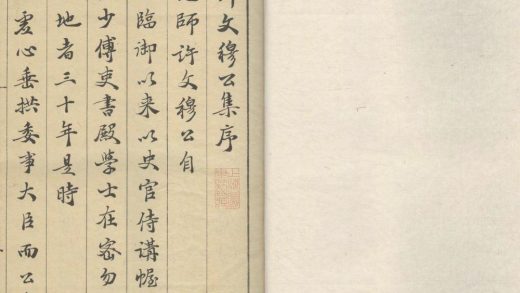 許文穆公集序
師許文穆公自
臨御以来以史官侍講幄
少傅吏書殿學士在密勿
地者三十年是時
虚心垂拱委事大臣而公